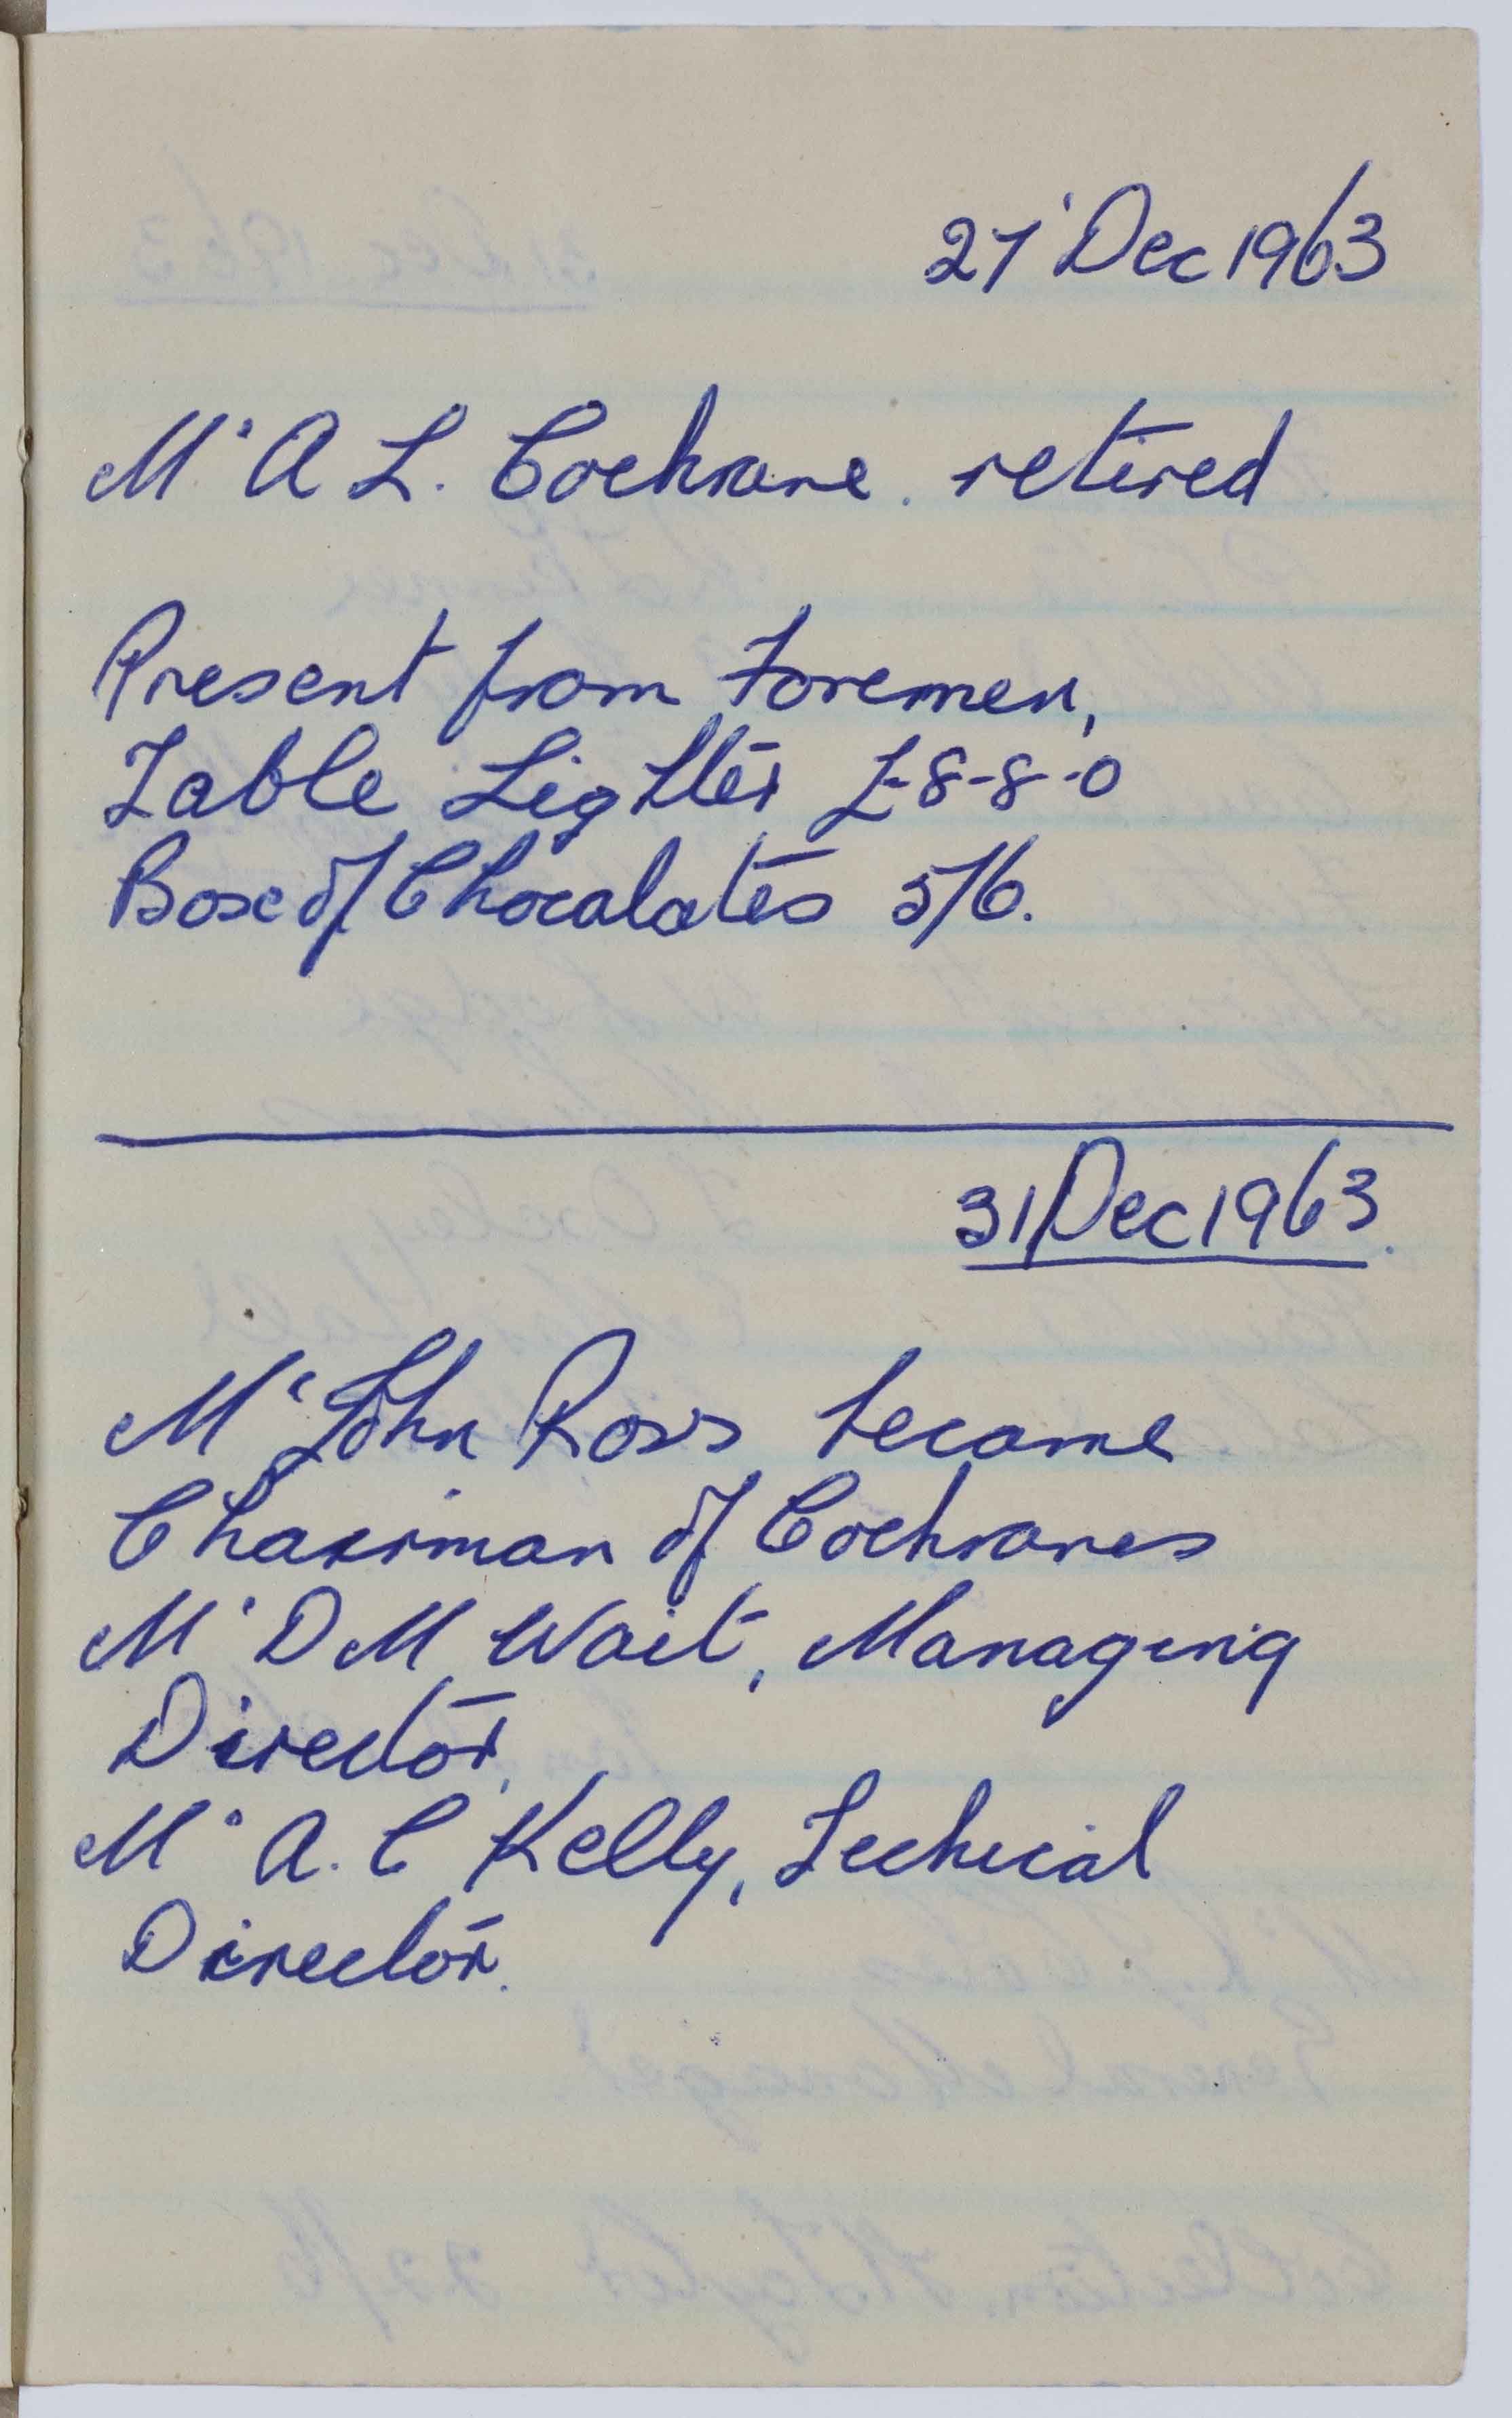 27 Dec 1963
Mr A L. Cochrane. retired
Present from Foremen,
Table Lighter £-8-8-0
Box of Chocalates 5/6.
31 Dec 1963.
Mr John Ross became
Chairman of Cochranes
Mr D M Wait, Managing
Director,
Mr A. C Kelly, Techical
Director.